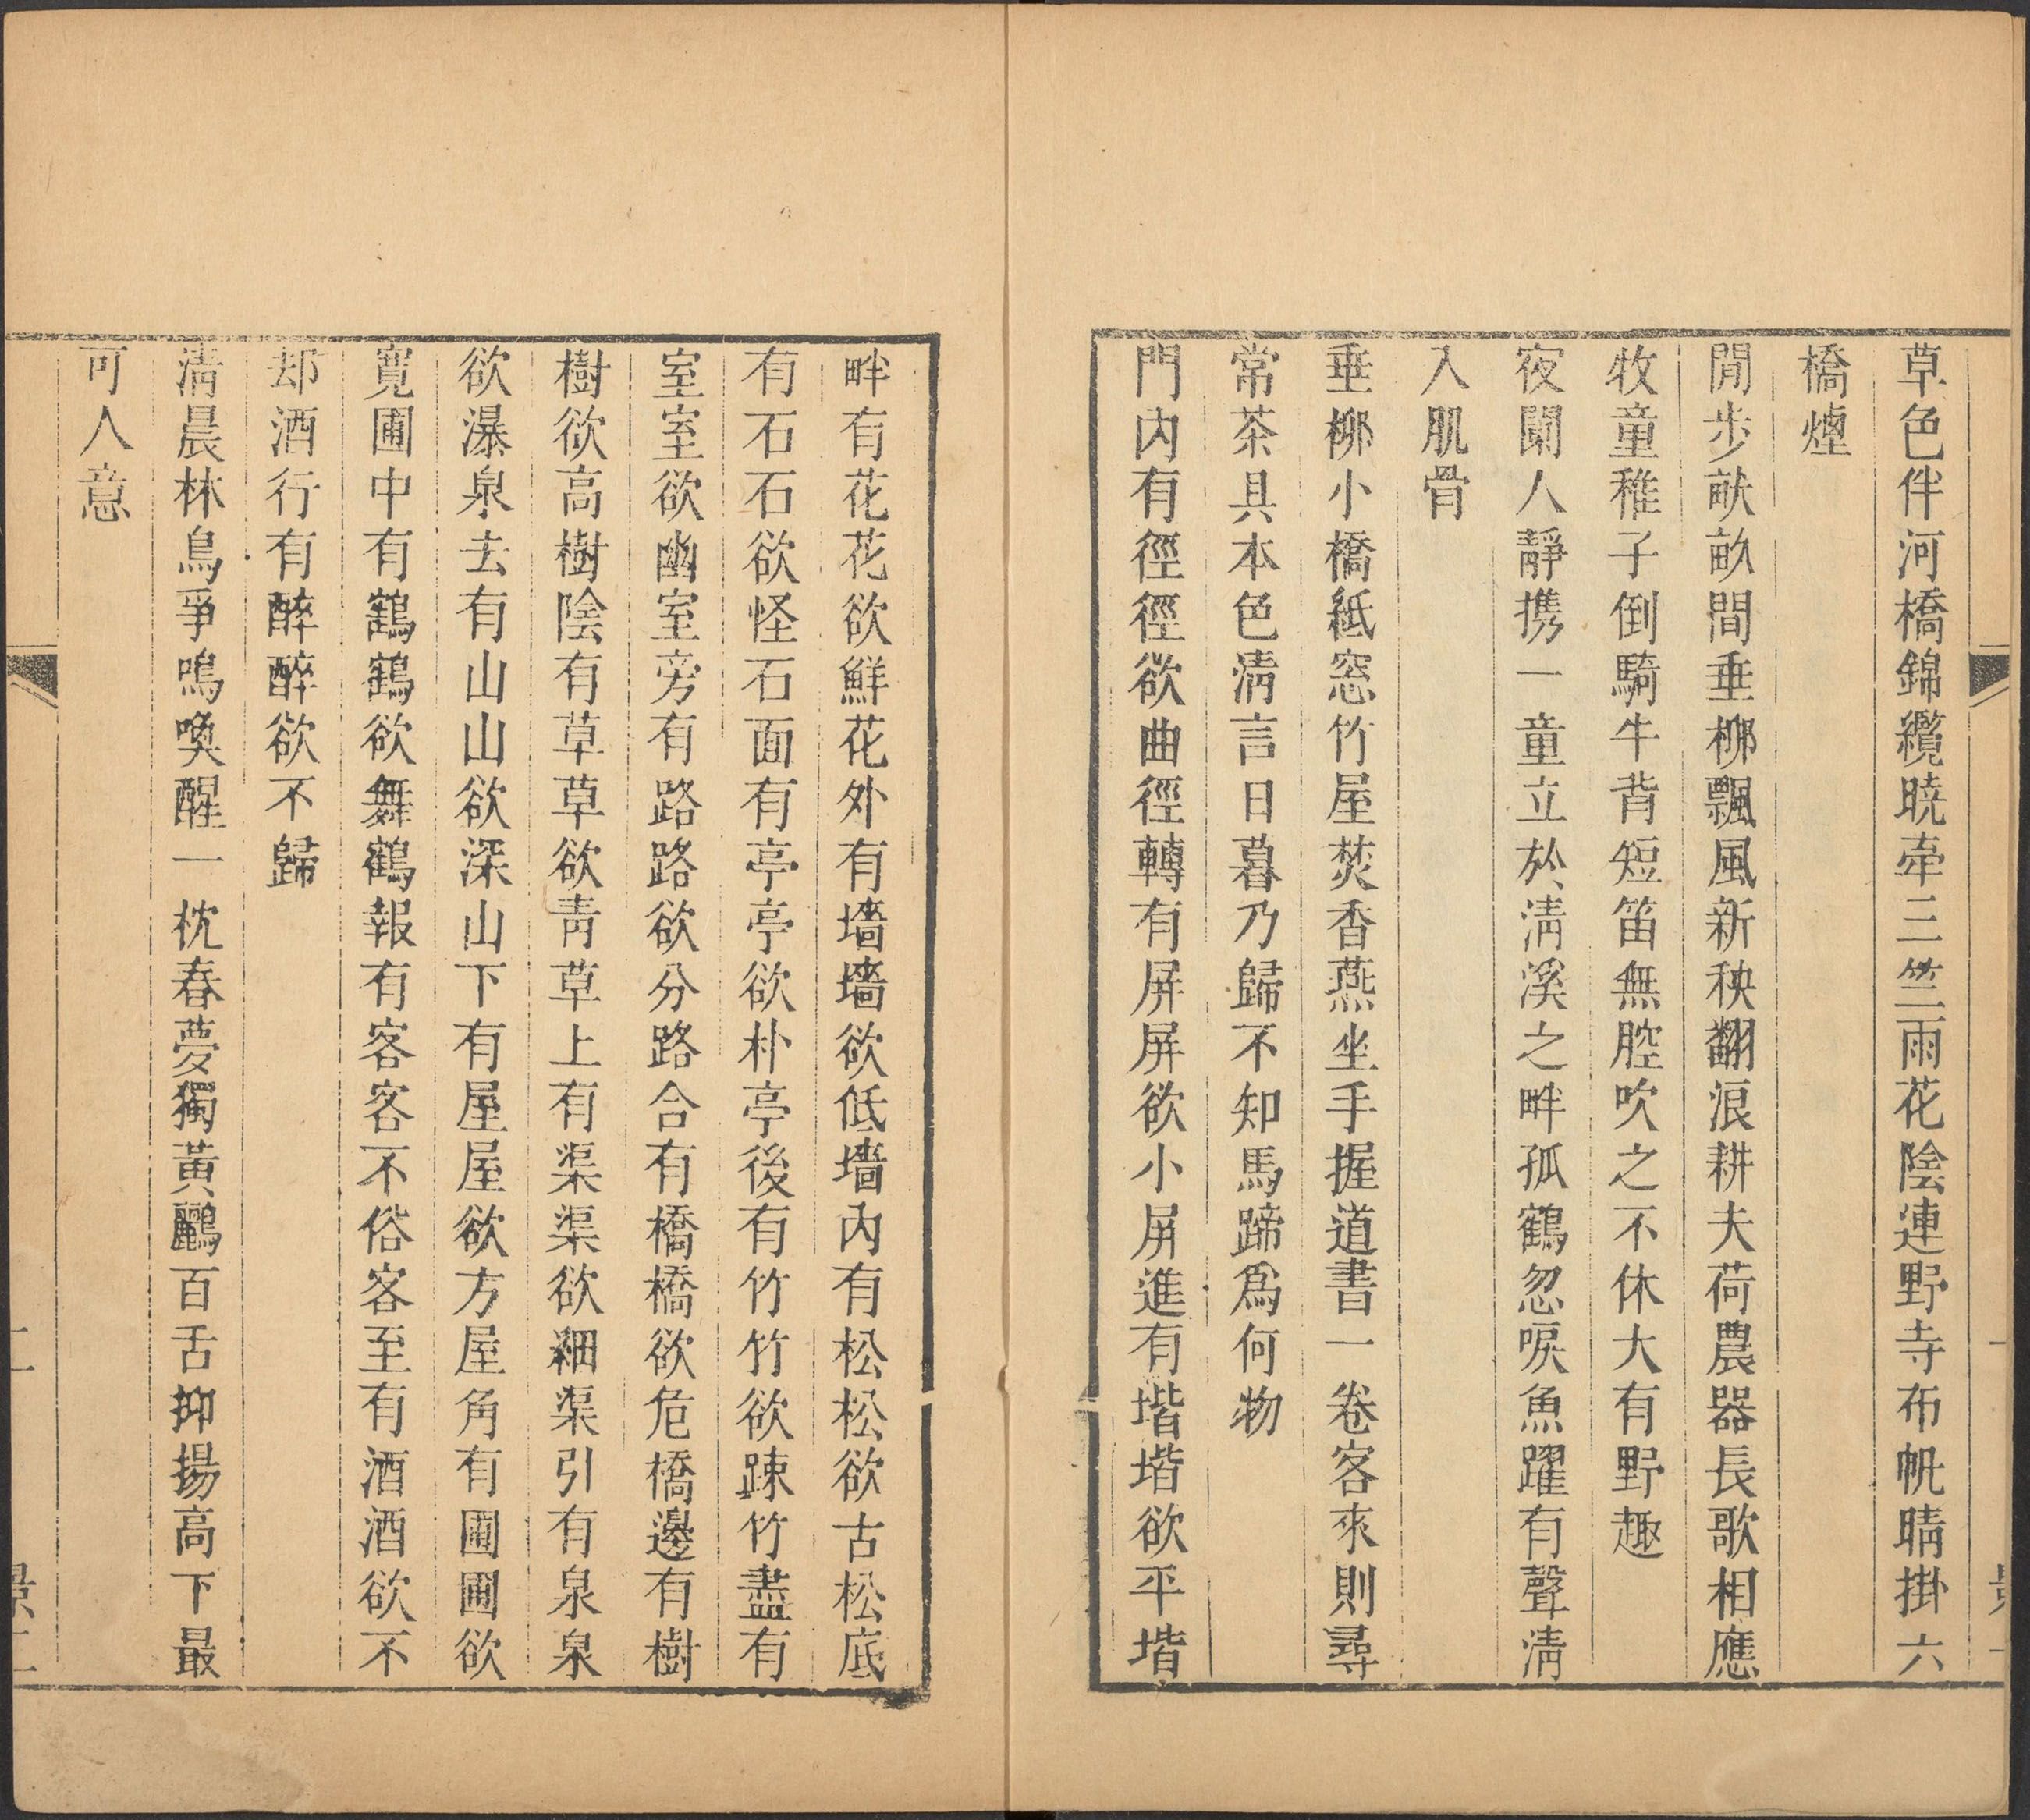 草色伴河橋錦纜曉牽三竺雨花陰連野寺布帆晴掛六
橋煙
閒步畎畝間垂柳飄風新秧翻浪耕夫荷農器長歌相應
牧童稚子倒騎牛背短笛無腔吹之不休大有野趣
夜闌人靜携一童立於清溪之畔孤鶴忽唳魚躍有聲清
入肌骨
垂柳小橋紙窓竹屋焚香燕坐手握道書一卷客來則尋
常茶具本色清言日暮乃歸不知馬蹄爲何物
門內有徑徑欲曲徑轉有屏屏欲小屏進有堦堦欲平堦
畔有花花欲鮮花外有墻墻欲低墻內有松松欲古松底
有石石欲怪石面有亭亭欲朴亭後有竹竹欲踈竹盡有
室室欲幽室旁有路路欲分路合有橋橋欲危橋邊有樹
樹欲高樹陰有草草欲靑草上有渠渠欲細渠引有泉泉
欲瀑泉去有山山欲深山下有屋屋欲方屋角有圃圃欲
寬圃中有鶴鶴欲舞鶴報有客客不俗客至有酒酒欲不
却酒行有醉醉欲不歸
淸晨林鳥爭鳴喚醒一枕春夢獨黃鸝百舌抑揚高下最
可人意
二
景二